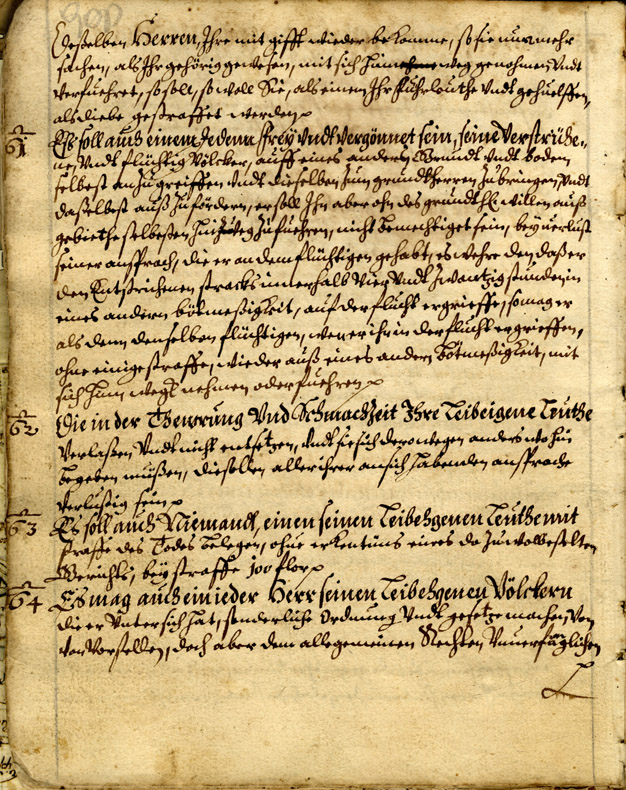 deßelben Herren, Ihre mit gifft wieder bekomme, so sie nun mehr
sachen, als Ihr gehörig gewesen, mit sich hin weg genohmen, Vndt
verfuehret, so soll, so woll Sie, als einen Ihr fuhrleuthe Vndt gehuelffen,
als diebe gestraffet werden
61 Es soll auch einem Jedenn frey Vndt vergönnet sein, seine verstriche-
nen Vndt flüchtig Völcker, auff eines andern Grundt Vndt boden
selbest anzugreiffen Vndt dieselben zum grundtherren zu bringen, Vndt
daselbest auß zufödern, er soll Ihn aber ohn des grundth willen auß
gebiethe selbesten hinweg zufuehren, nicht bemechtiget sein, bey verlust
seiner ansprach, die er an dem flüchtigen gehabt, es wehre den daß er
den Entstrichenen stracks innerhalb Vier Vndt Zwantzig stunden, in
eines andern bötmeßigkeit, auf der flucht ergrieffe, so mag er
als denn denselben flüchtigen, wen er ihn in der flucht ergrieffen,
ohne einige straffe, wieder auß eines anders bötmeßigkeit, mit
sich hinn wegk nehmen oder fuehren
62 Die in der Theurung Vnd Schmachtzeit Ihre Leibeigene Leuthe
Verlaßen Vndt nicht entsetzen, Vndt sie sich derowegen anders wo hin
begeben mußen, dieselben aller ihrer an sich habenden ansprache
verlustig sein
63 Es soll auch Niemandt, einen seinen Leibeygenen Leuthe mit
straffe des Todes belegen, ohne erkentnus eines dazu wolbestelten
Gerichts, bey straffe 100 flor
64 Es mag auch ein ieder Herr seinen Leibeygenen Völckern
die er Vnter sich hat, sonderliche Ordnung Vndt gesetze machen, Von
doch aber dem allegemeinen Rechten Vnverfänglichen